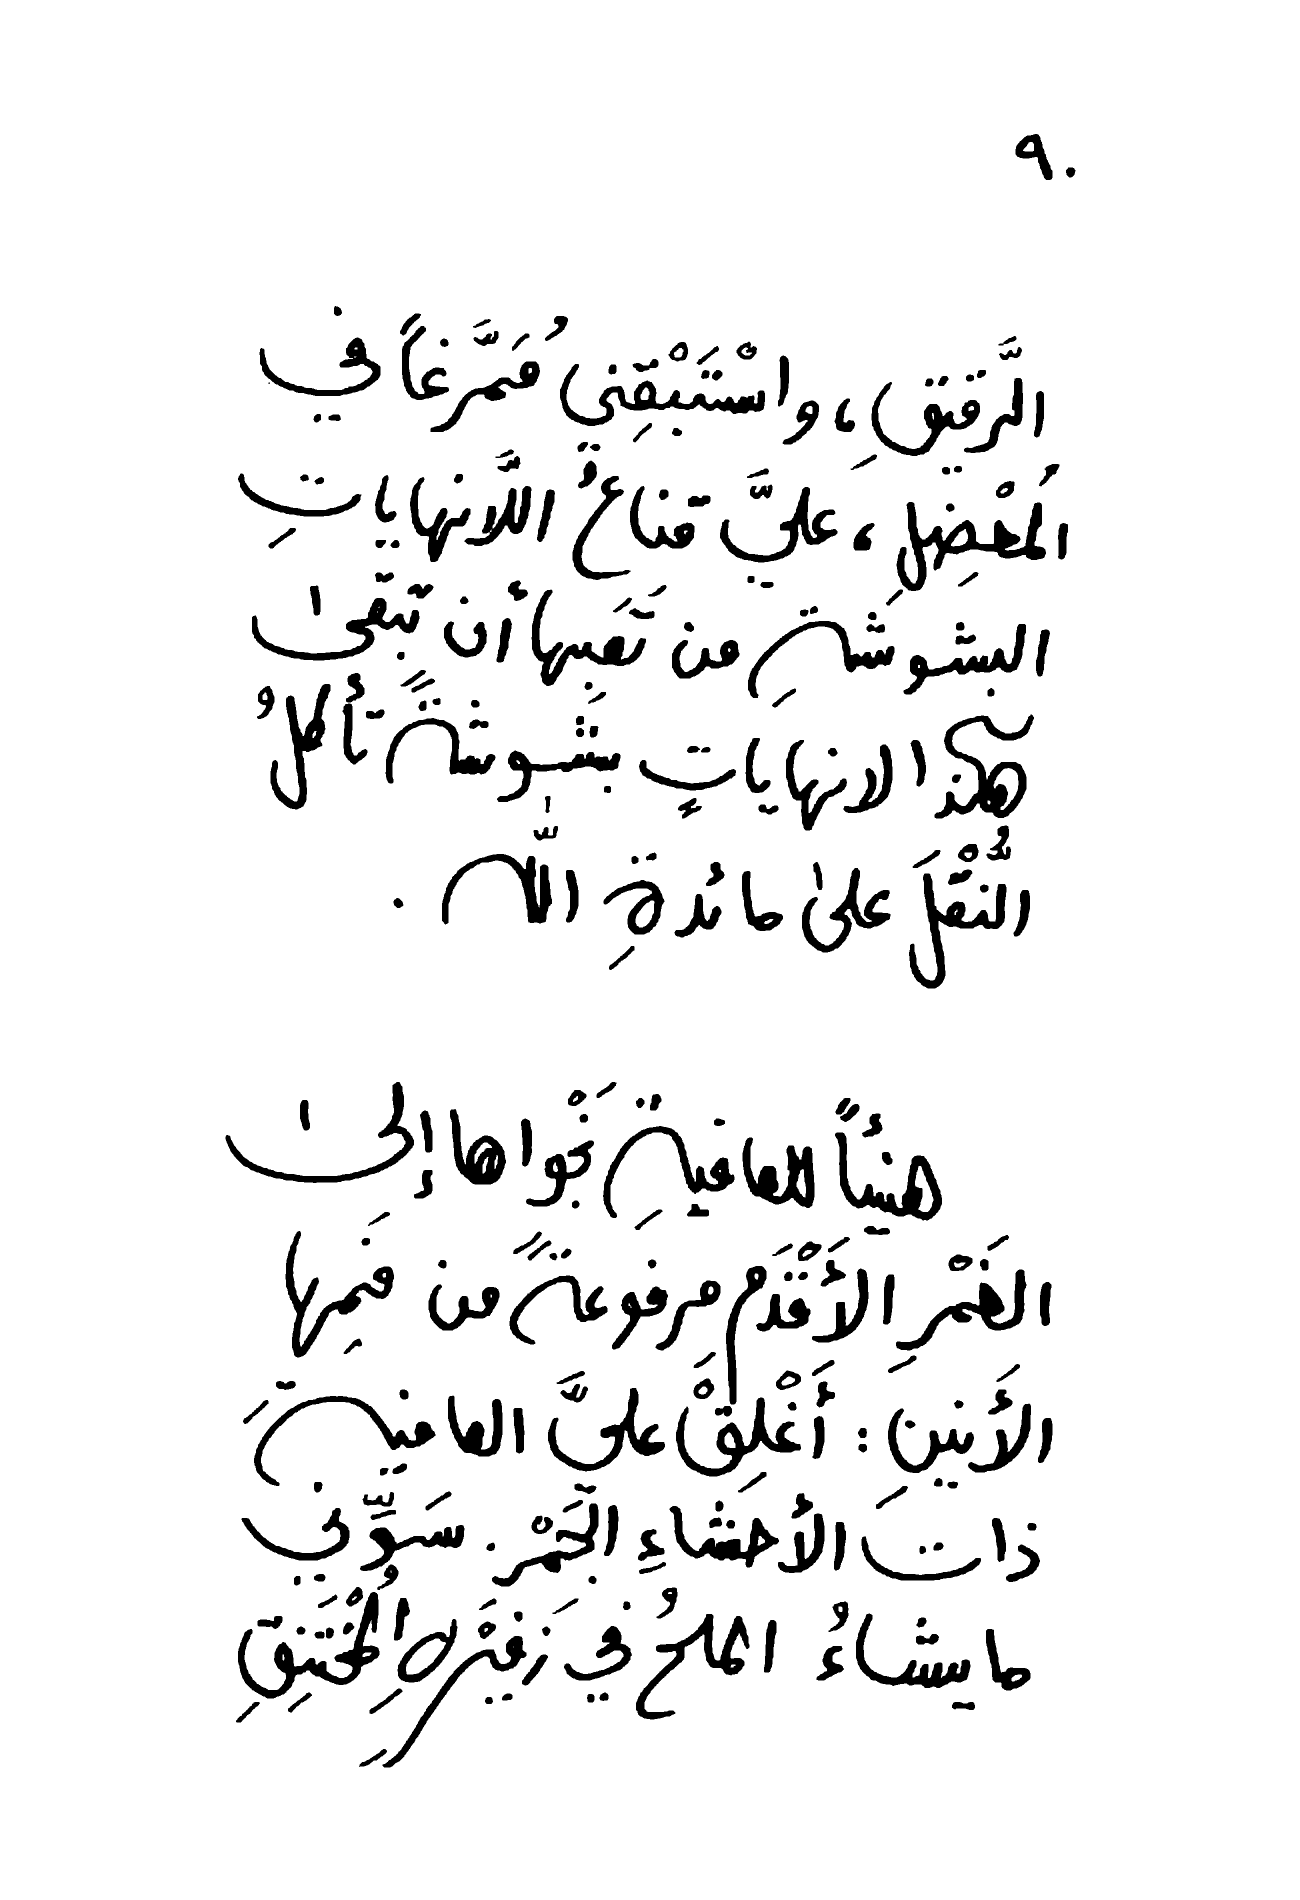 ٩٠
الرَّقيقِ، واسْتَبْقِني مُمَرَّغاً في
المُعْضِلِ، عليَّ قناعُ اللَّانهاياتِ
البشوشةِ من تَعَبِها أن تبقىٰ
هكذا لانهاياتٍ بشوشةً تأكلُ
النُّقْلَ علىٰ مائدةِ اللّٰه .
هنيئاً للعافيةِ نَجْواها إلىٰ
الغَمْرِ الأَقْدَمِ مرفوعةً من فَمِها
الأَنينِ : أَغْلِقْ عليَّ العافيةَ
ذاتَ الأحشاءِ الجَمْر . سَوِّني
ما يشاءُ الملحُ في زَفيرِهِ المُخْتَنِقِ